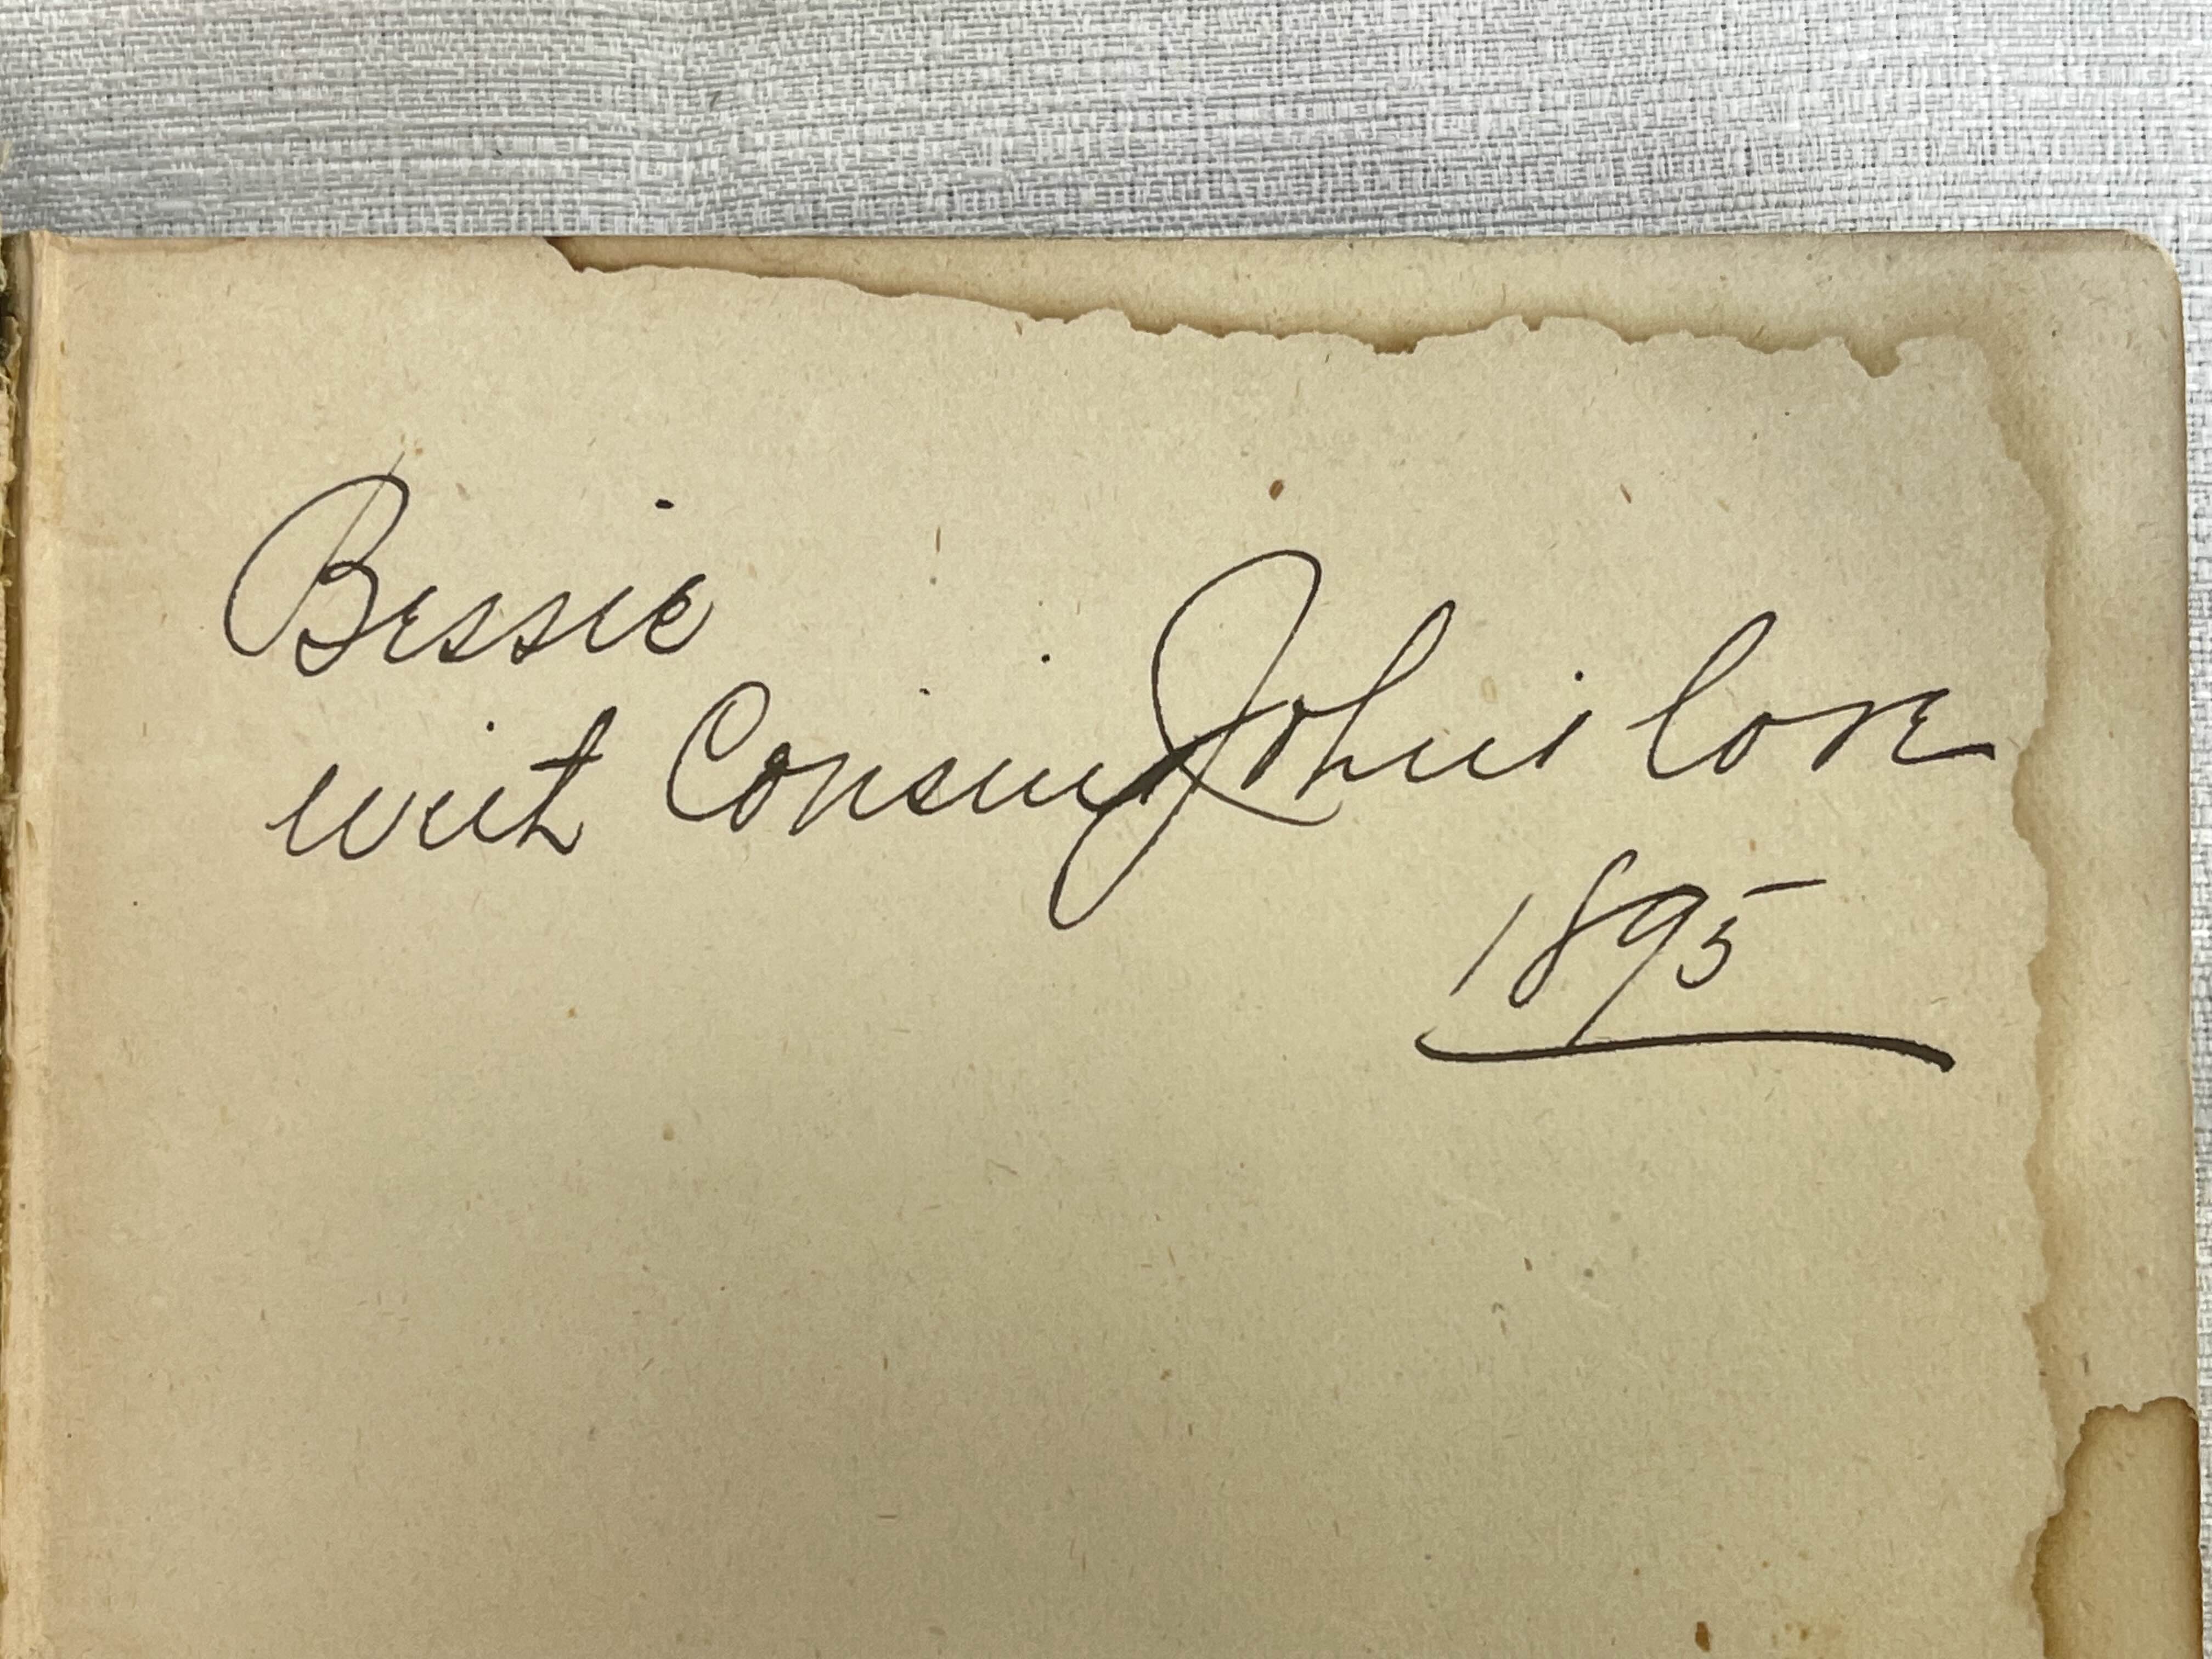 Bessie
with Cousin John's love
1895